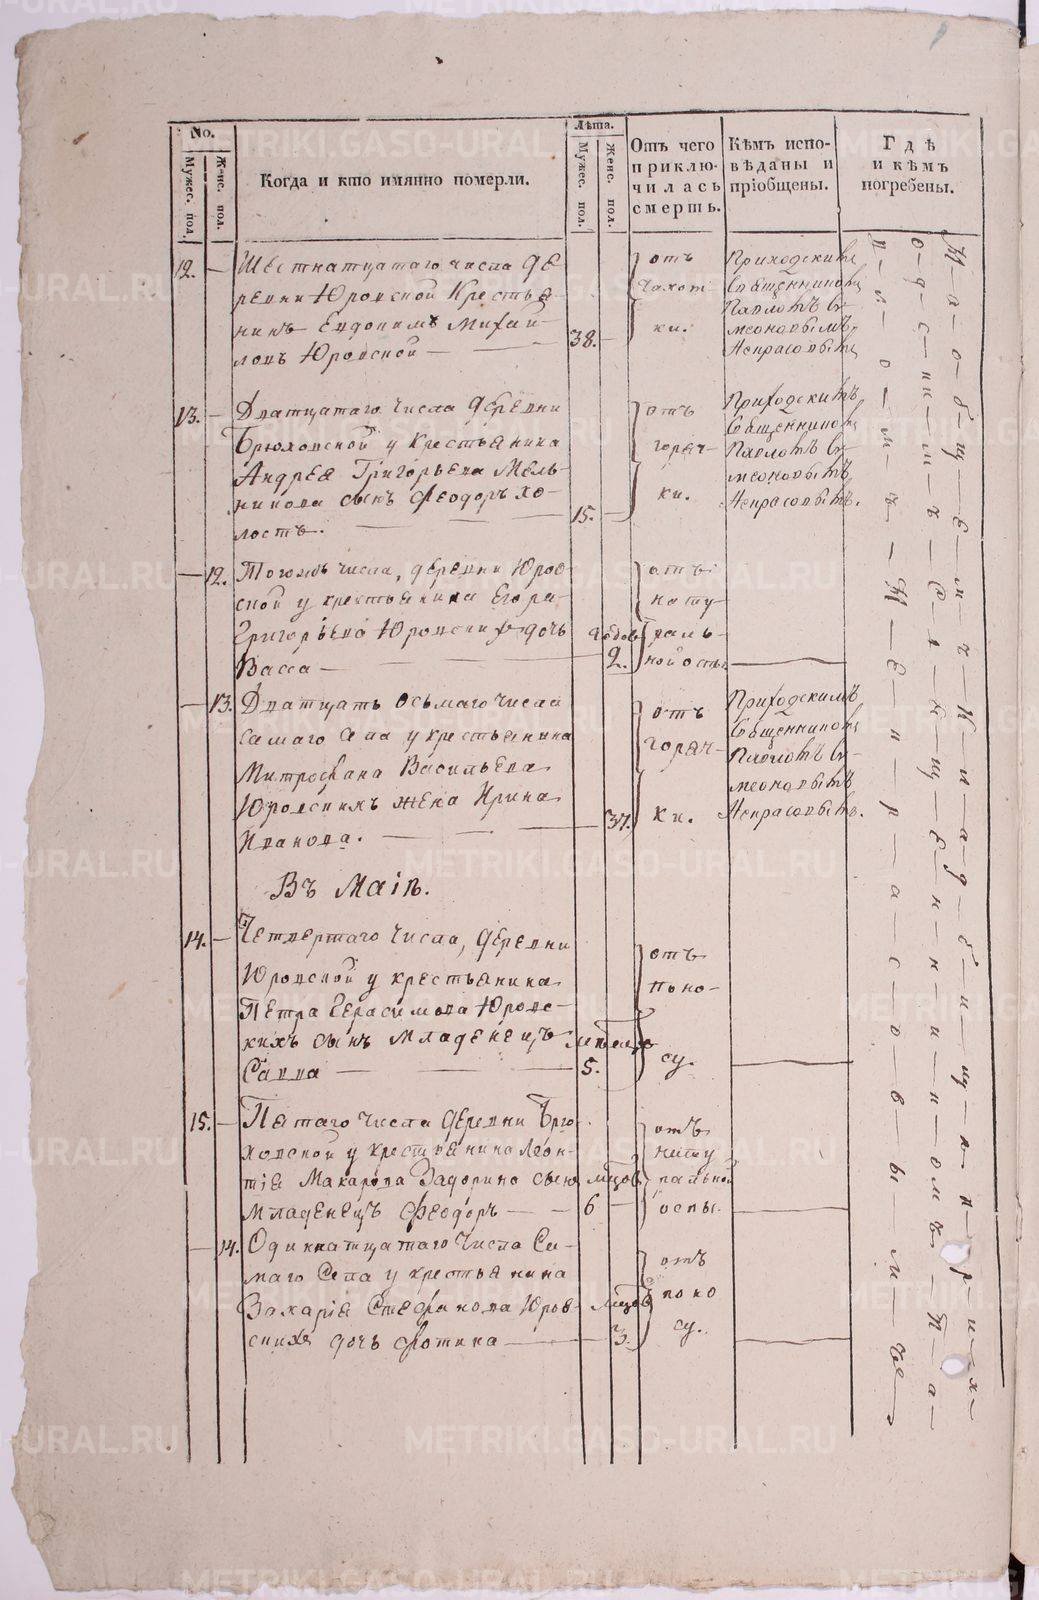 No.
Мужес. пол.
Женс. пол.
Когда и кто имянно померли.
Лѣта.
Мужес. пол.
Женс. пол.
Отъ чего
приклю-
чилась
смерть.
Кѣмъ испо-
вѣданы и
прiобщены.
Гдѣ
и кѣмъ
погребены.
12. — Шестнатцатаго числа де
ревни Юровской Крестья
нинъ Евдокимъ Михай
ловъ Юровской — —
38. —
отъ
чахот-
ки.
Приходскимъ
Священникомъ
Павломъ Си-
меоновымъ
Некрасовымъ
13. — Дватцатаго числа деревни
Брюховской у крестьянина
Андрея Григорьева Мель-
никова сынъ Феодоръ хо-
лостъ. — — —
15. —
отъ
горяч-
ки.
Приходскимъ
Священникомъ
Павломъ Си-
меоновымъ
Некрасовымъ.
— 12. Тогожъ числа, деревни Юров
ской у крестьянина Егора
Григорьева Юровских дочь
Васса —
годов
2.
отъ
нату
раль-
ной оспы
— 13. Дватцать осьмаго числа
самаго Села у крестьянина
Митрофана Васильева
Юровскихъ жена Ирина
Иванова. — —
37.
отъ
горяч-
ки.
Приходскимъ
Священникомъ
Павломъ Си-
меоновымъ
Некрасовымъ.
Въ Маiѣ.
14. — Четвертаго числа, деревни
Юровской у крестьянина
Петра Герасимова Юровс-
кихъ сынъ младенецъ
Савва — — —
5.
отъ
поно-
су.
15. — Пятаго числа деревни Брю
ховской у крестьянина Леон-
тiя Макарова Задорина сынъ
младенецъ Феодоръ — —
мцов
6 —
отъ
нату
ральной
оспы.
— 14. Одиннатцатаго числа Са-
маго Села у крестьянина
Захарiя Стефанова Юров-
скихъ дочь Фотина —
мцов
3.
отъ
поно
су.
На общемъ кладбищѣ приход-